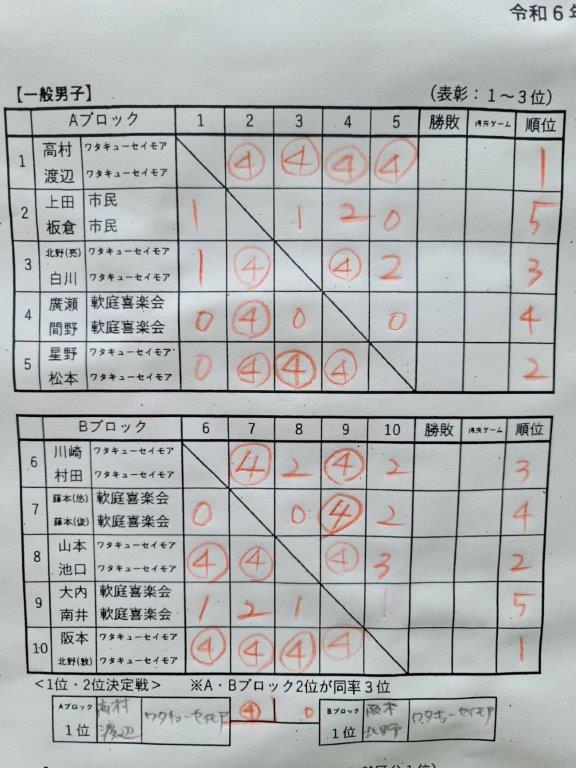 令和6年
【一般男子】 (表彰：1〜3位)
Aブロック 1 2 3 4 5 勝敗 得失ゲーム 順位
1 高村 ワタキューセイモア ④ ④ ④ ④ 1
渡辺 ワタキューセイモア
2 上田 市民 1 1 2 0 5
板倉 市民
3 北野(亮) ワタキューセイモア 1 ④ ④ 2 3
白川 ワタキューセイモア
4 廣瀬 軟庭喜楽会 0 ④ 0 0 4
間野 軟庭喜楽会
5 星野 ワタキューセイモア 0 ④ ④ ④ 2
松本 ワタキューセイモア
Bブロック 6 7 8 9 10 勝敗 得失ゲーム 順位
6 川崎 ワタキューセイモア ④ 2 ④ 2 3
村田 ワタキューセイモア
7 藤本(悠) 軟庭喜楽会 0 0 ④ 2 4
藤本(俊) 軟庭喜楽会
8 山本 ワタキューセイモア ④ ④ ④ 3 2
池口 ワタキューセイモア
9 大内 軟庭喜楽会 1 2 1 1 5
南井 軟庭喜楽会
10 阪本 ワタキューセイモア ④ ④ ④ ④ 1
北野(敦) ワタキューセイモア
<1位・2位決定戦> ※A・Bブロック2位が同率3位
Aブロック 1位 高村 渡辺 ワタキューセイモア ④ 0 Bブロック 1位 阪本 北野 ワタキューセイモア